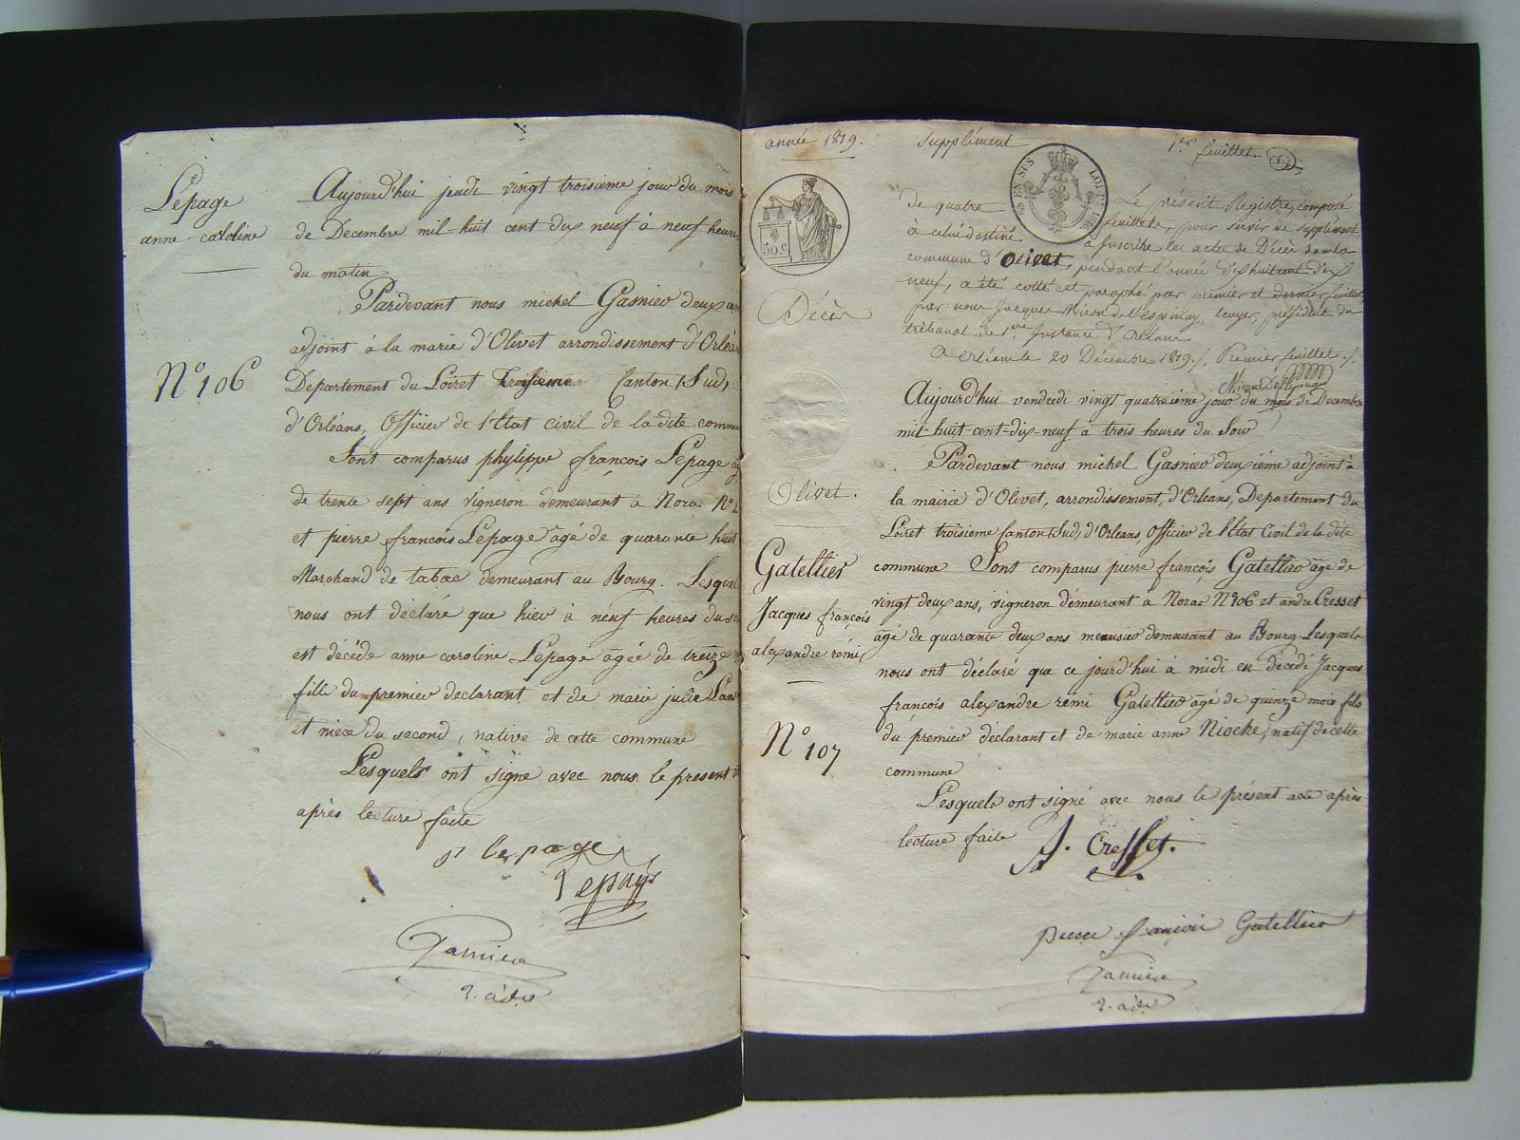 Lepage
anne caroline
N° 106
Aujourd'hui jeudi vingt troisieme jour du mois
de Decembre mil-huit cent dix neuf à neuf heures
du matin
Pardevant nous michel Gasnier deux
adjoint à la marie d'Olivet arrondissement d'Orléa
Departement du Loiret troisieme Canton Sud,
d'Orléans, Officier de l'état civil de la dite comm
Sont comparus phylippe françois Lepage
de trente sept ans vigneron demeurant à Norac N°
et pierre françois Lepage âgé de quarante huit
Marchand de tabac demeurant au Bourg. Lesque
nous ont déclaré que hier à neuf heures du
est décédé anne caroline Lepage âgée de treize
fille du premier declarant et de marie julie
et niece du second, native de cette commune
Lesquels ont signé avec nous le present
après lecture faite
lepage
Lepage
Gasnier
2. adt
année 1819.
Supplément
1er feuillet.
50 C
Décès
Olivet.
Le présent Registre, composé
de quatre feuillets, pour servir de supplément
à celui destiné à inscrire les actes de Décès de la
commune d'Olivet, pendant l'année dix huit cent dix
neuf, a été cotté et paraphé par premier et dernier feuillet
par nous Jacques Miron de l'Espinay, Ecuyer, président du
tribunal de 1ere Instance d'Orléans
A Orléans le 20 Décembre 1819. Premier feuillet
Gatellier
Jacques françois
alexandre rémi
N° 107
Aujourd'hui vendredi vingt quatrieme jour du mois de Decembre
mil-huit-cent-dix-neuf à trois heures du Soir
Pardevant nous michel Gasnier deuxiéme adjoint à
la mairie d'Olivet, arrondissement, d'Orleans, Departement du
Loiret troisieme Canton Sud, d'Orleans Officier de l'état Civil de la dite
commune Sont comparus pierre françois Gatellier âgé de
vingt deux ans, vigneron démeurant à Norac N° 106 et andre Cresset
âgé de quarante deux ans menusier demeurant au Bourg Lesquels
nous ont déclaré que ce jourd'hui à midi est décédé Jacques
françois alexandre rémi Gatellier âgé de quinze mois fils
du premier déclarant et de marie anne Nioche, natif de cette
commune
Lesquels ont signé avec nous le présent acte après
lecture faite
A. Cresset.
pierre françois Gatellier
Gasnier
2. adt